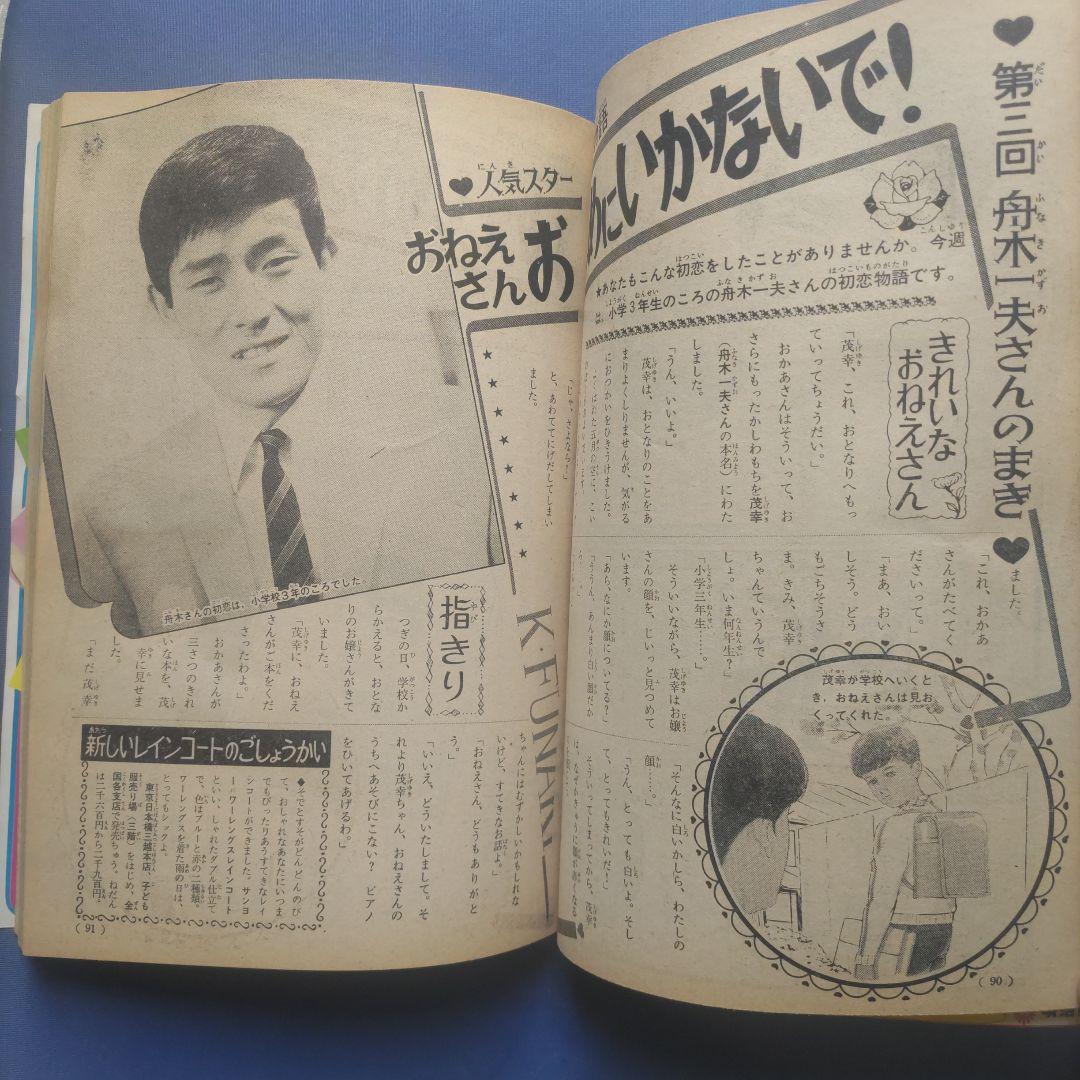 ♥第三回 舟木一夫さんのまき♥
めにいかないで!
★あなたもこんな初恋をしたことがありませんか。今週
は、小学3年生のころの舟木一夫さんの初恋物語です。
きれいな
おねえさん
「茂幸、これ、おとなりへもっ
ていってちょうだい。」
おかあさんはそういって、お
さらにもったかしわもちを茂幸
(舟木一夫さんの本名)にわた
しました。
「うん、いいよ。」
茂幸は、おとなりのことをあ
まりよくしりませんが、気がる
におつかいをひきうけました。
ました。
「これ、おかあ
さんがたべてく
ださいって。」
「まあ、おい
しそう。どう
もごちそうさ
ま。きみ、茂幸
ちゃんていうんで
しょ。いま何年生?」
「小学三年生……。」
そういいながら、茂幸はお嬢
さんの顔を、じいっと見つめて
います。
「あら、なにか顔についてる?」
「ううん、あんまり白い顔だか
茂幸が学校へいくと
き、おねえさんは見お
くってくれた。
「そんなに白いかしら、わたしの
顔……。」
「うん、とっても白いよ。そし
て、とってもきれいだ。」
そういってしまってから、茂幸
(90)
♥人気スター
おねえ
さん お
「じゃ、さよなら!」
と、あわててにげだしてしまい
ました。
★★★★★★★
K・FUNAKI
舟木さんの初恋は、小学校3年のころでした。
指きり
つぎの日、学校か
らかえると、おとな
りのお嬢さんがきて
いました。
「茂幸に、おねえ
さんがご本をくだ
さったわよ。」
おかあさんが
三さつのきれ
いな本を、茂
幸に見せま
した。
「まだ茂幸
ちゃんにはむずかしいかもしれな
いけど、すてきなお話よ。」
「おねえさん、どうもありがと
う。」
「いいえ、どういたしまして。そ
れより茂幸ちゃん、おねえさんの
うちへあそびにこない? ピアノ
をひいてあげるわ。」
新しいレインコートのごしょうかい
◆そでとすそがどんどんのび
て、おしゃれなあなたにいつま
でもぴったりあうすてきなレイ
ンコートができました。サンヨ
ーパワーレングスレインコート
といい、しゃれたダブル仕立て
で、色はブルーと赤の二種類。
ワーレングスを着た雨の日は、
とってもシックよ。
東京日本橋三越本店、子ども
服売り場(三階)をはじめ、全
国各支店で発売ちゅう。ねだん
は二千六百円から二千九百円。
(91)